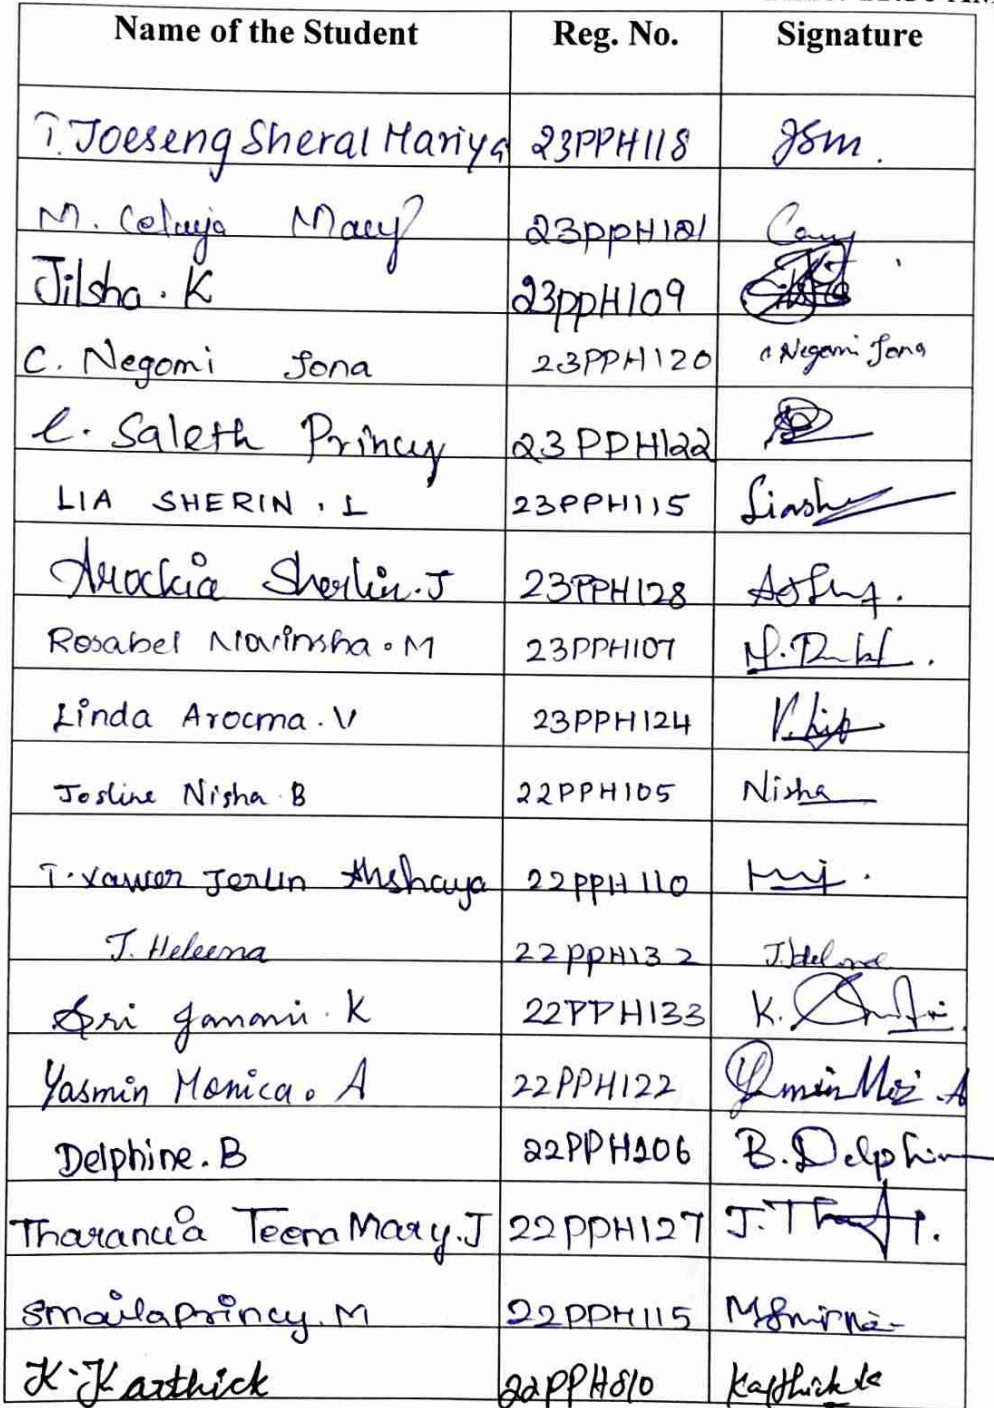 Name of the Student Reg. No. Signature
T. Joeseng Sheral Mariya 23PPH118 JSm.
M. Celuja Mary 23PPH121
Jilsha. K 23PPH109
C. Negomi Jona 23PPH120 C. Negomi Jona
C. Saleth Princy 23PPH122
LIA SHERIN. L 23PPH115 Liash
Arockia Sherlin. J 23PPH128
Rosabel Navinsha. M 23PPH107
Linda Arocma. V 23PPH124
Josline Nisha B 22PPH105 Nisha
T. Xavier Jerlin Akshaya 22PPH110
J. Heleena 22PPH132 J. Helena
Sri Janani. K 22PPH133
Yasmin Monica. A 22PPH122
Delphine. B 22PPH106 B. Delphin
Tharancia Teena Mary. J 22PPH127
Smaila Princy. M 22PPH115
K. Karthick 22PPH810 Karthick k